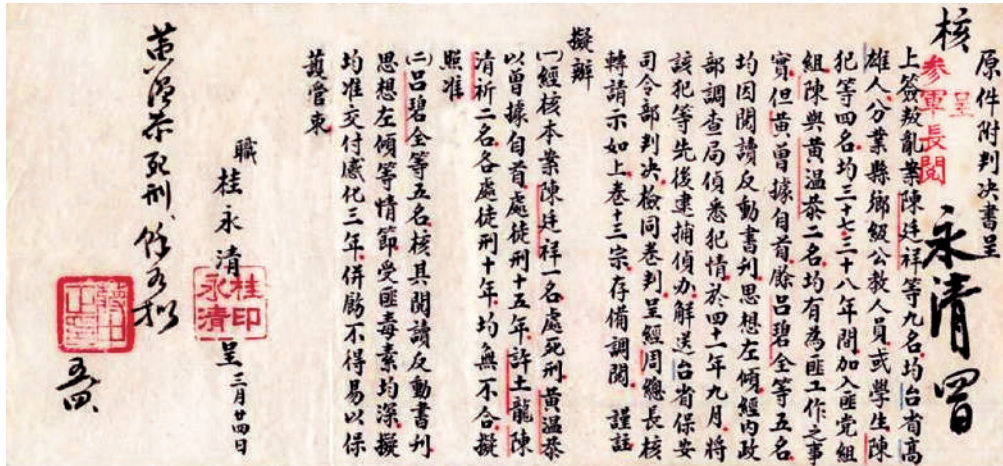 原件附判決書呈
核
呈
參軍長閱
永清
上簽叛亂案陳廷祥等九名均台省高
雄人分業縣鄉級公教人員或學生陳
犯等四名均三十七三十八年間加入匪党組
組陳與黃溫恭二名均有為匪工作之事
實但黃曾據自首餘呂碧全等五名
均因閱讀反動書刊思想左傾經內政
部調查局偵悉犯情於四十一年九月將
該犯等先後逮捕偵办解送台省保安
司令部判決檢同卷判呈經周總長核
轉請示如上卷十三宗存備調閱 謹註
擬辦
(一)經核本案陳廷祥一名處死刑黃溫恭
以曾據自首處徒刑十五年許土龍陳
清祈二名各處徒刑十年均無不合擬
照准
(二)呂碧全等五名核其閱讀反動書刊
思想左傾等情節受匪毒素均深擬
均准交付感化三年併勵不得易以保
護管束
職 桂永清 呈 三月廿四日
桂永清印
黃溫恭死刑、餘如擬
蔣中正印